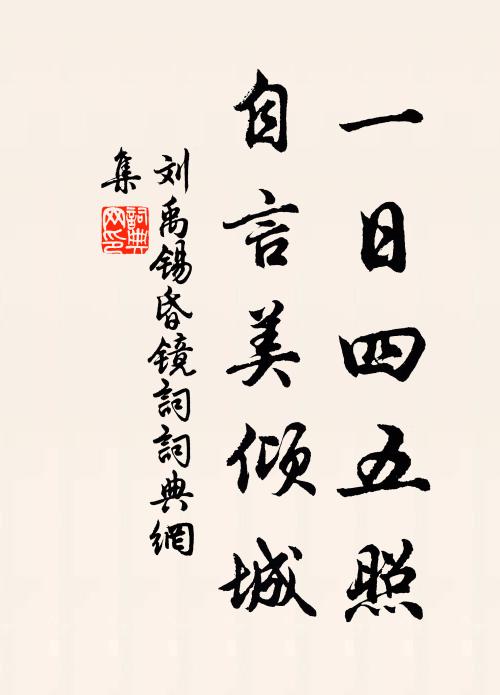 一日四五照
自言美倾城
刘禹锡昏镜詞詞典網
集
詞典
网印